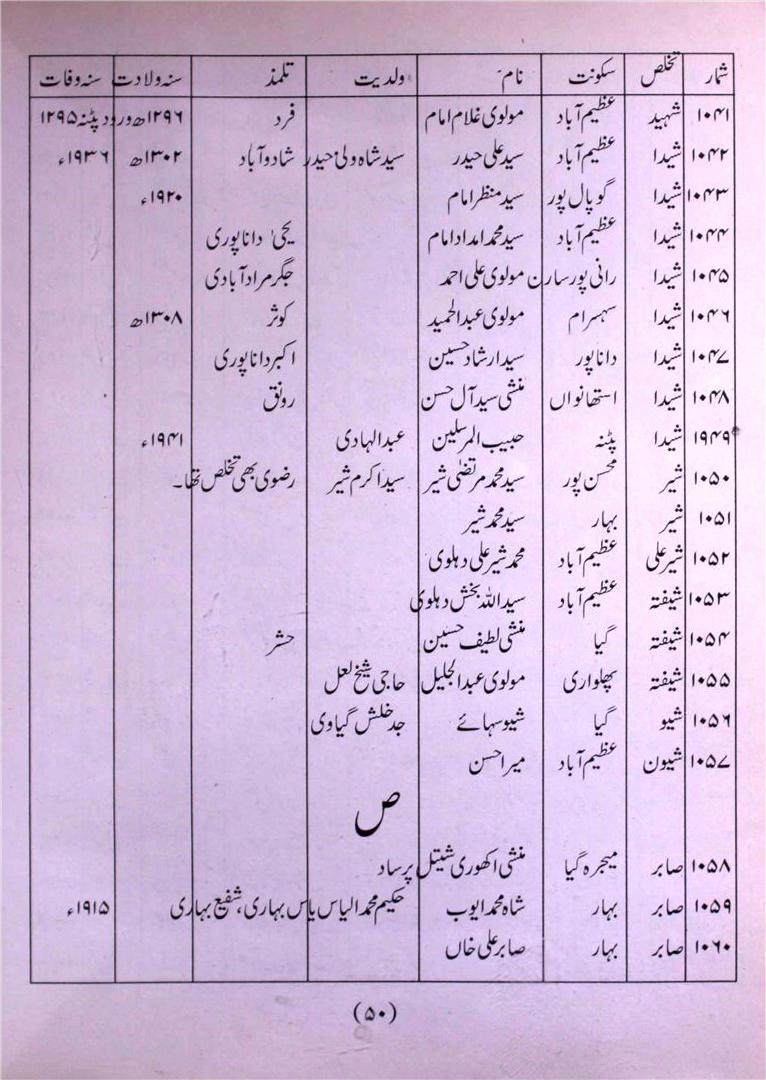 شمار تخلص سکونت نام ولدیت تلمذ سنہ ولادت سنہ وفات
۱۰۴۱ شہید عظیم آباد مولوی غلام امام فرد ۱۲۹۶ھ ورود پٹنہ ۱۲۹۵
۱۰۴۲ شیدا عظیم آباد سید علی حیدر سید شاہ ولی حیدر شاد و آباد ۱۳۰۲ھ ۱۹۳۶ء
۱۰۴۳ شیدا گوپال پور سید منظر امام ۱۹۲۰ء
۱۰۴۴ شیدا عظیم آباد سید محمد امداد امام یحییٰ داناپوری
۱۰۴۵ شیدا رانی پور سارن مولوی علی احمد جگر مرادآبادی
۱۰۴۶ شیدا سہسرام مولوی عبدالحمید کوثر ۱۳۰۸ھ
۱۰۴۷ شیدا داناپور سید ارشاد حسین اکبر داناپوری
۱۰۴۸ شیدا استھانواں منشی سید آل حسن رونق
۱۹۴۹ شیدا پٹنہ حبیب المرسلین عبدالہادی ۱۹۴۱ء
۱۰۵۰ شیر محسن پور سید محمد مرتضیٰ شیر سید اکرم شیر رضوی بھی تخلص تھا۔
۱۰۵۱ شیر بہار سید محمد شیر
۱۰۵۲ شیر علی عظیم آباد محمد شیر علی دہلوی
۱۰۵۳ شیفتہ عظیم آباد سید اللہ بخش دہلوی
۱۰۵۴ شیفتہ گیا منشی لطیف حسین حشر
۱۰۵۵ شیفتہ پھلواری مولوی عبدالجلیل حاجی شیخ لعل
۱۰۵۶ شیو گیا شیو سہائے جد خلش گیاوی
۱۰۵۷ شیون عظیم آباد میر احسن
ص
۱۰۵۸ صابر میجرہ گیا منشی اکھوری شیتل پرساد
۱۰۵۹ صابر بہار شاہ محمد ایوب حکیم محمد الیاس یاس بہاری، شفیع بہاری ۱۹۱۵ء
۱۰۶۰ صابر بہار صابر علی خاں
(۵۰)